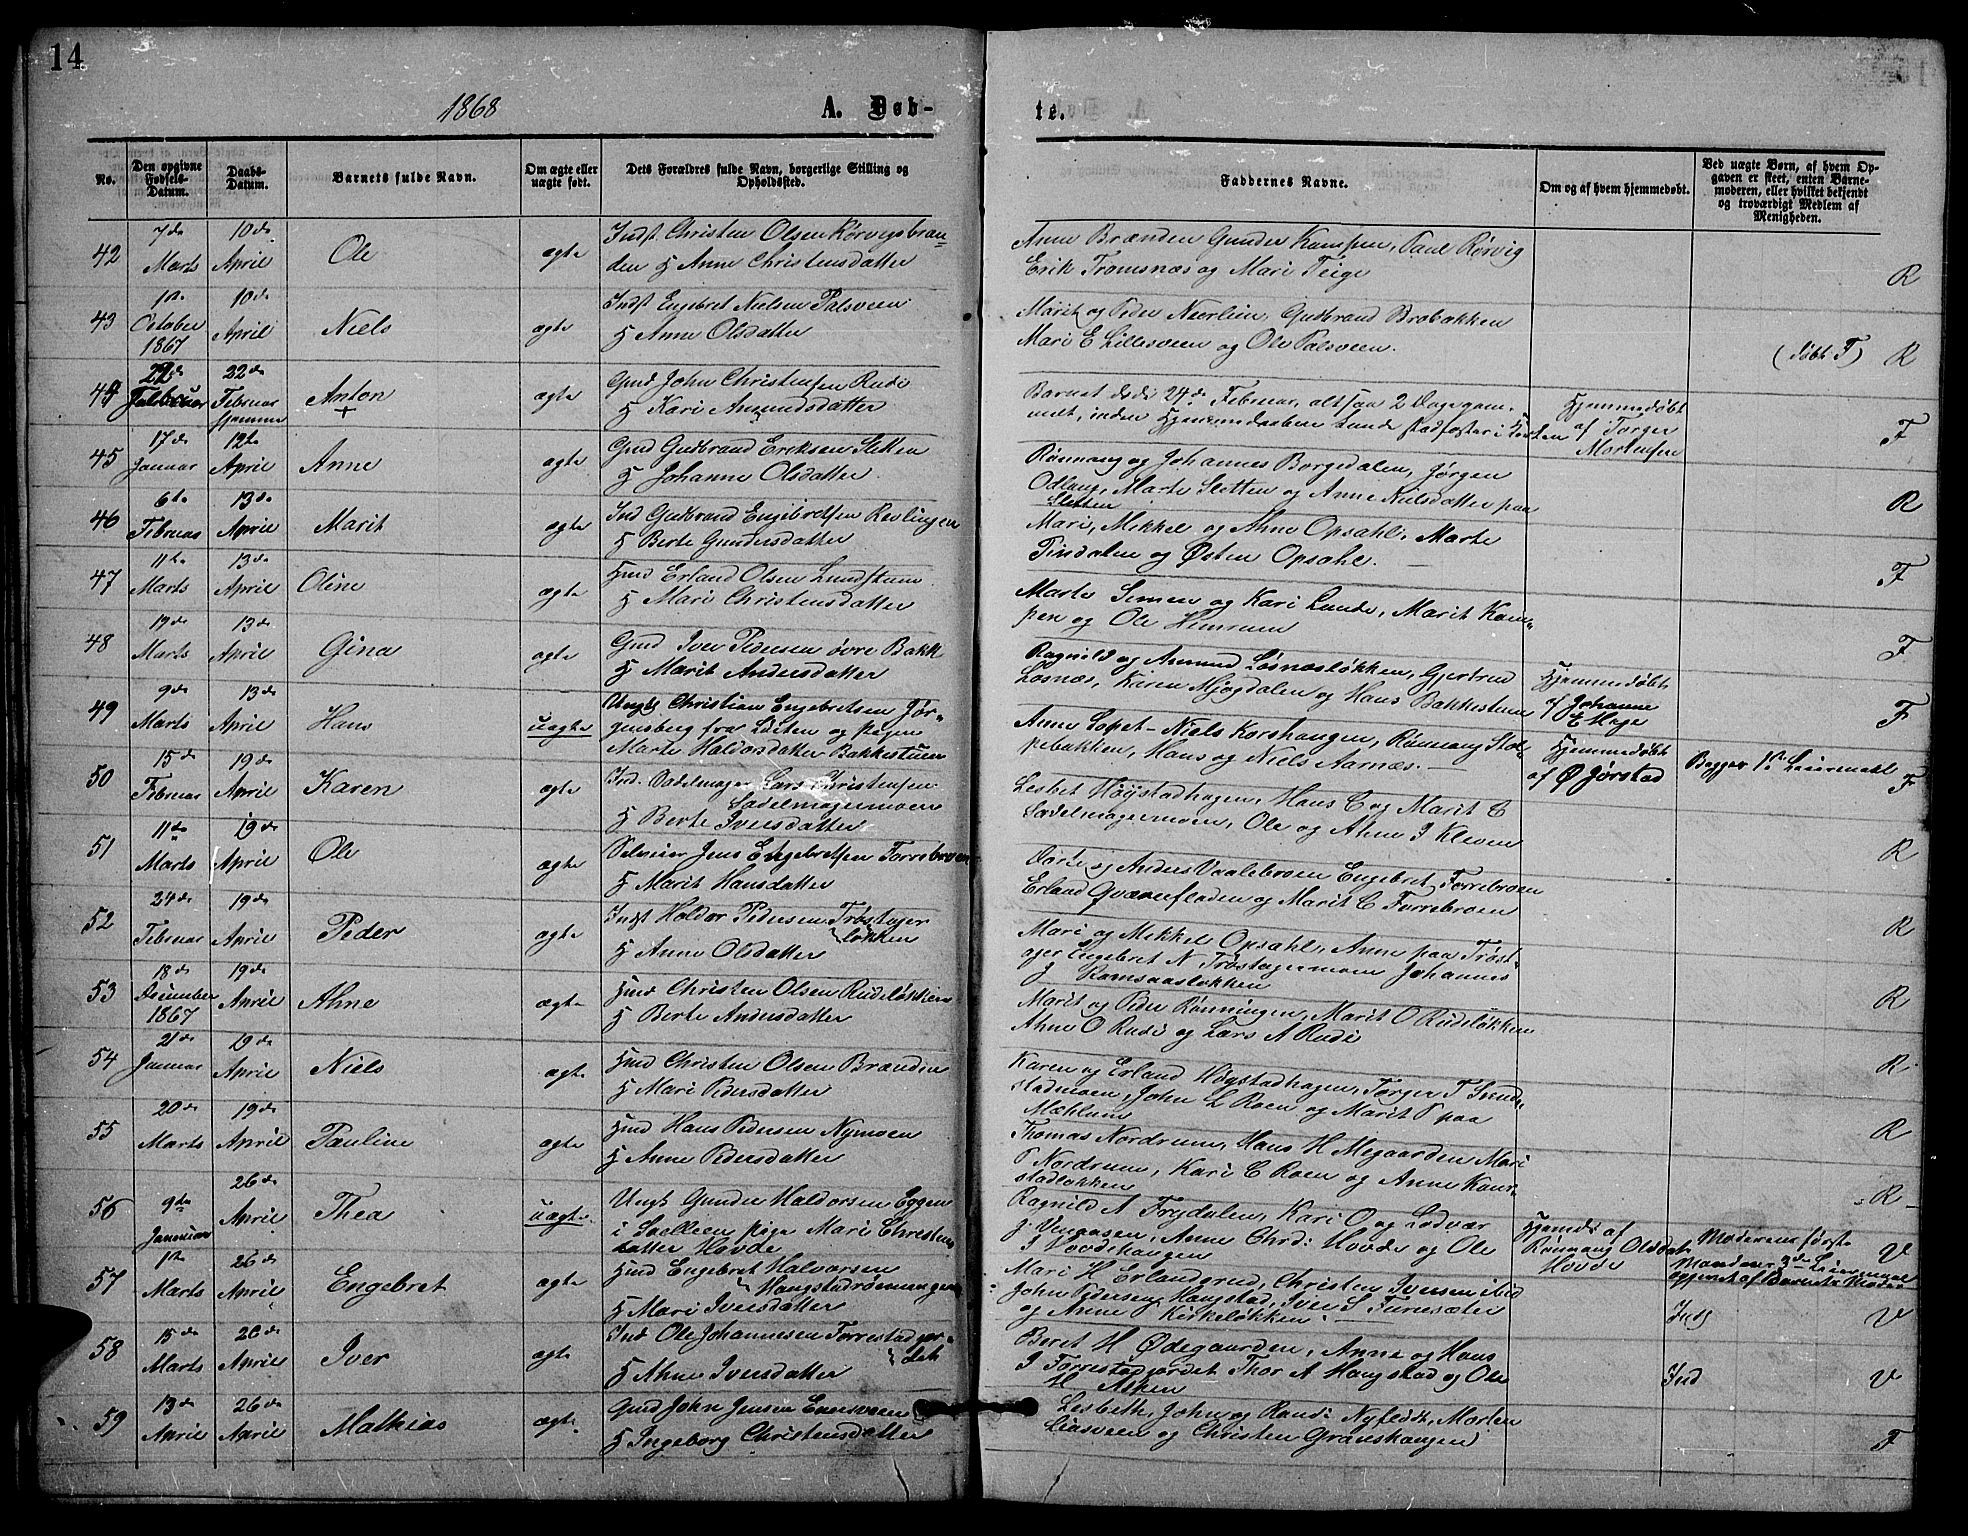 14
1868
A. Døb-
te.
No.
Den opgivne Fødsels-Datum.
Daabs-Datum.
Barnets fulde Navn.
Om ægte eller uægte født.
Dets Forældres fulde Navn, borgerlige Stilling og Opholdssted.
Faddernes Navne.
Om og af hvem hjemmedøbt.
Ved uægte Børn, af hvem Opgaven er skeet, enten Barnemoderen, eller hvilket bekjendt og troværdigt Medlem af Menigheden.
42 7de Marts 10de April Ole ægte Indst Christen Olsen Rørvigsbran-
den H Anne Christensdatter
Anne Brænden Gunder Paul Rørvig
Erik Tromsnæs og Mari Teige
R
43 1ste October 1867 10de April Niels ægte Indst Engebret Nielsen Palsveen
H Anne Olsdatter
Marit og Peder Gudbrand Brobakken
Mari E Lillesveen og Ole Palsveen.
(døbt F) R
44 22de Februar 22de Februar hjemme Anton + ægte Gmd John Christensen Rudi
H Kari Amundsdatter
Barnet døde 24de Februar, altsaa 2 Dage gam-
melt, inden Hjemmedaaben kunde stadfæstes i Kirken
Hjemmedøbt
af Torger
Mortensen
F
45 17de Januar 12te April Anne ægte Gmd Gudbrand Eriksen Sletten
H Johanne Olsdatter
Rønnaug og Johannes Borgedalen, Jørgen
Odlaug, Marte Sletten og Anne Nilsdatter paa
Sletten
R
46 6te Februar 13de April Marit ægte Ind Gudbrand Engebretsen Revlingen
H Berte Gundersdatter
Mari, Mikkel og Ahne Opsahl, Marte
Tindalen og Østen Opsahl.
F
47 11te Marts 13de April Oline ægte Hmd Erland Olsen Lundstuen
H Mari Christensdatter
Marte Simen og Kari Lunde, Marit Kam-
pen og Ole
F
48 19de Marts 13de April Gina ægte Gmd Iver Pedersen øvre Bakk
H Marit Andersdatter
Ragnild og Amund Løsnæsløkken, Gjertrud
Løsnæs, Karen Mjogdalen og Hans Bakkestuen
Hjemmedøbt
af Johanne
E Hage
F
49 9de Marts 13de April Hans uægte Ungk Christian Engebretsen Jør-
gensberg fra Løiten og pigen
Marte Haldorsdatter Bakkestuen
Anne Lopet Niels Korshaugen, Rønnaug Stol-
pebakken, Hans og Niels Aarnæs.
Hjemmedøbt
af Ø Jørstad
Begges 1ste Leiermaal
F
50 15de Februar 19de April Karen ægte Ind. Sadelmager Lars Christensen
Sadelmagermoen
H Berte Iversdatter
Lesbet Høystadhagen, Hans C og Marit C
Sadelmagermoen, Ole og Ahne I Kleven
R
51 11te Marts 19de April Ole ægte Selveier Jens Engebretsen Forrebroen
H Marit Hansdatter
Dorte og Anders Vaalebroen Engebret Forrebroen
Erland Qværnfladen og Marit C Forrebroen
R
52 24de Februar 19de April Peder ægte Indst Haldor Pedersen Trøstager
løkken
H Anne Olsdatter
Mari og Mikkel Opsahl, Anne paa Trøst-
ager Engebret N Trøstagermoen Johannes
J Ramsaasløkken
R
53 18de December 1867 19de April Ahne ægte Hmd Christen Olsen Rudeløkken
H Berte Andersdatter
Marit og Peder Rønningen, Marit O Rudeløkken
Ahne O Rudi og Lars A Rudi
R
54 21de Januar 19de April Niels ægte Hmd Christen Olsen Brænden
H Mari Pedersdatter
Karen og Erland Høystadhagen, Torger T Sund-
stadmoen, John L Roen og Marit P paa
Mæhlum
R
55 20de Marts 19de April Pauline ægte Hmd Hans Pedersen Nymoen
H Anne Pedersdatter
Thomas Nordrum, Hans H Megaarden Mari
P Nordrum, Kari C Roen og Anne Kaur-
stadløkken
R
56 9de Januar 26de April Thea uægte Ungk Gunder Haldorsen Eggen
i Sælleen pige Mari Christens-
datter Hovde
Ragnild A Frydalen, Kari O og Lodvær
J Vengaasen, Anne Chrd: Hovde og Ole
I Hovdehaugen
Hjemds af
Rønnaug Olsdatt
Hovde
Moderens første
Mandens 3de Leiermaal
opgivet af Barnets Moder
V
57 1ste Marts 26de April Engebret ægte Hmd Engebret Halvorsen
Haugstadrønningen
H Mari Iversdatter
Mari H Erlandgrud, Christen Iversen ibid
John Pedersen Haugstad, Iver S Furuesæter
og Anne P Kirkeløkken.
Inds V
58 15de Marts 26de April Iver ægte Ind Ole Johannesen Forrestadjor-
det
H Ahne Iversdatter
Beret H Ødegaarden, Anne og Hans
I Forrestadjordet Thor A Haugstad og Ole
H Asken
Ind V
59 13de April 26de April Mathias ægte Gmd John Jensen Enersveen
H Ingeborg Christensdatter
Lesbeth, John og Randi Nyfeldt, Morten
Liasveen og Christen Graushaugen
F